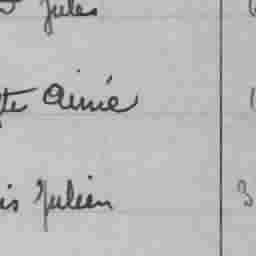 Jules
te Aimé
is Julien 3